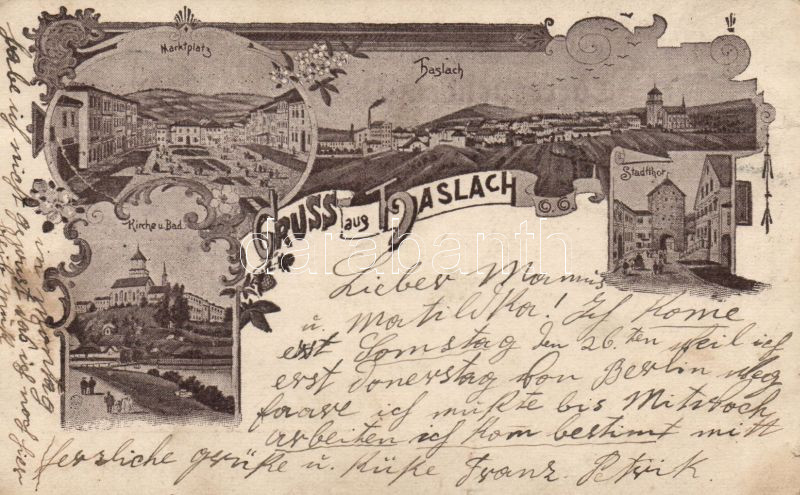 Marktplatz
Haslach
Stadtthor
Kirche u. Bad.
GRUSS aus HASLACH
darabanth
Lieber Mamus
u. Matilka! Ich kome
erst Somstag den 26.ten weil ich
erst donerstag von Berlin weg
faare ich mußte bis Mitwoch
arbeiten ich kom bestimt mitt
Herzliche grüße u. Küße Franz. Petrik.
habe ich nicht
gewust das ich noch hier
im